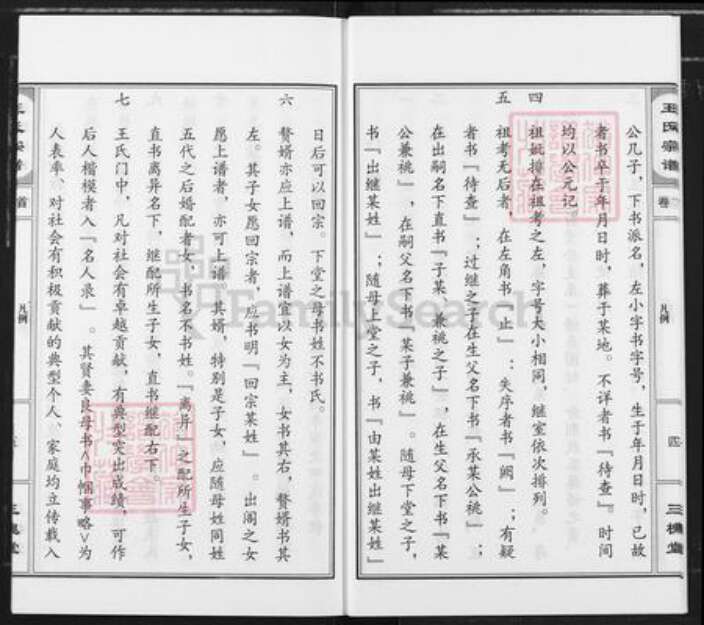 王氏宗谱
卷
凡例
四
三槐堂
公几子，下书派名，左小字书字号，生于年月日时，已故
者书卒于年月日时，葬于某地。不详者书『待查』。时间
均以公元记
四 祖妣排在祖考之左，字号大小相同，继室依次排列。
五 祖考无后者，在左角书『止』；失序者书『阙』；有疑
者书『待查』；过继之子在生父名下书『承某公祧』；
在出嗣名下直书『子某，兼祧之子』，在生父名下书『某
公兼祧』，在嗣父名下书『某子兼祧』。随母下堂之子，
书『出继某姓』；随母上堂之子，书『由某姓出继某姓』
日后可以回宗。下堂之母书姓不书氏。
六 赘婿亦应上谱，而上谱宜以女为主，女书其右，赘婿书其
左。其子女愿回宗者，应书明『回宗某姓』。出阁之女
愿上谱者，亦可上谱。其婿，特别是子女，应随母姓同姓
五代之后婚配者女，书名不书姓。『离异』之配所生子女，
直书离异名下，继配所生子女，直书继配右下。
七 王氏门中，凡对社会有卓越贡献，有典型突出成绩，可作
后人楷模者入『名人录』。其贤妻良母书＜巾帼事略＞为
人表率、对社会有积极贡献的典型个人、家庭均立传载入
首
凡例
FamilySearch